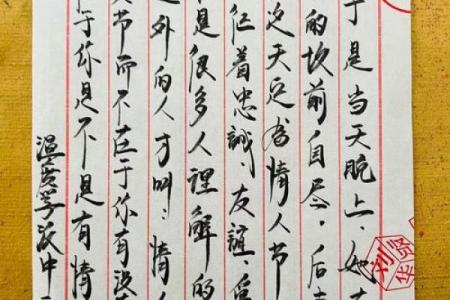 于是当天晚上,她
的坟前自尽,后
这天定为情人节
征着忠誠、友誼、爱
是很多人理解的
之外的人才叫:情人
节而不在于你有没
于你是不是有情
温度学派中
刘贤华